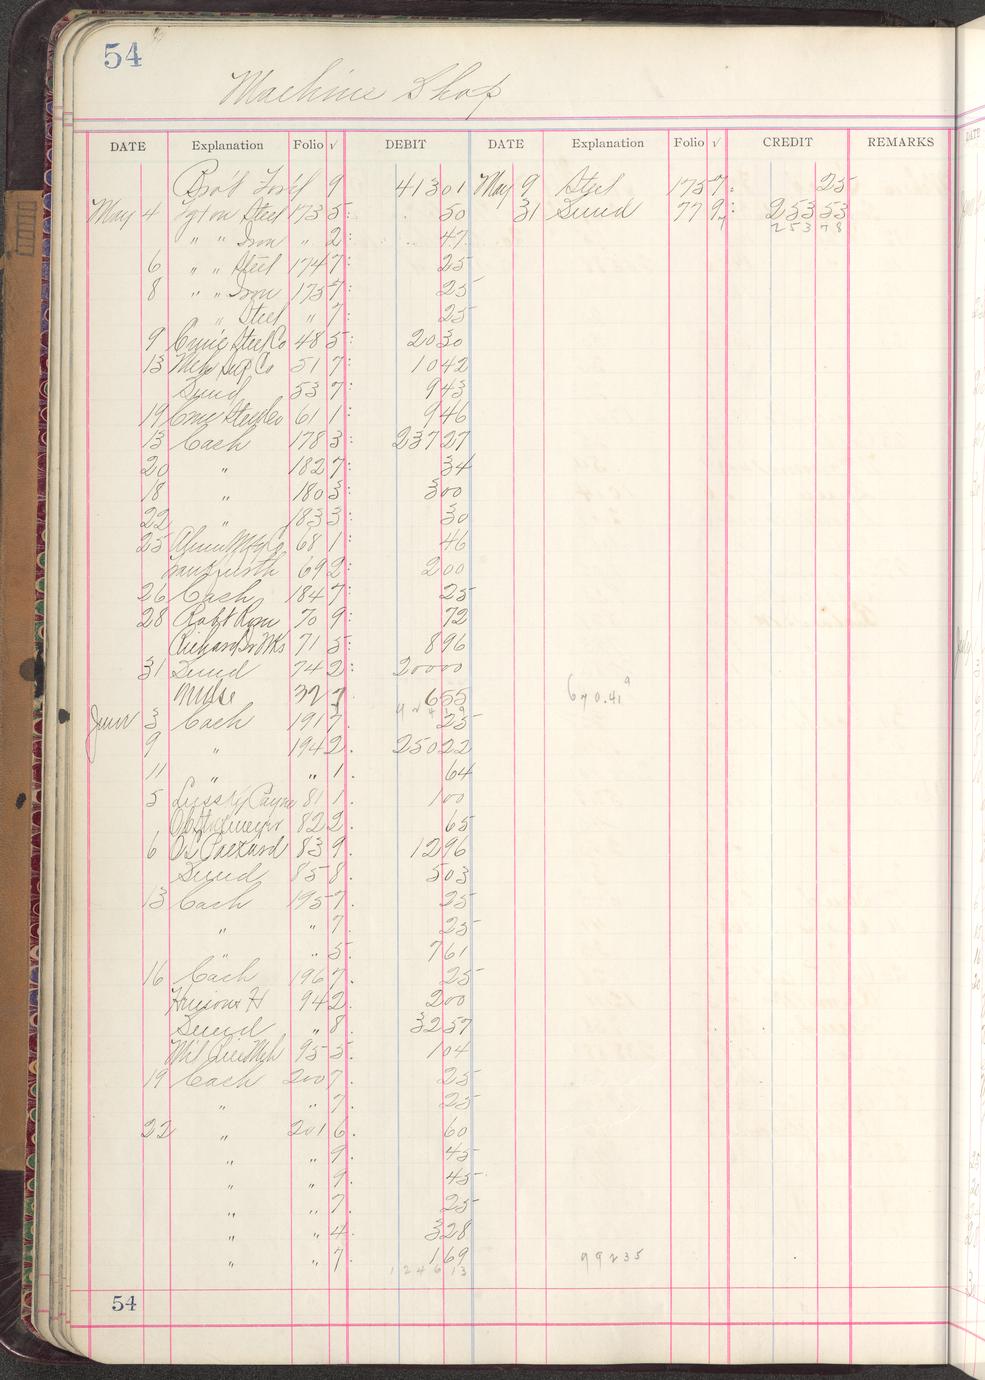 54
Machine Shop
DATE Explanation Folio √ DEBIT DATE Explanation Folio √ CREDIT REMARKS
Bro't For'd 9 413 01 May 9 Steel 175 7: 25
May 4 Steel 173 5: 50 31 Sund 77 9: 253 53
" " Iron " 2: 47 253 78
6 " " Steel 174 7: 25
8 " " Iron 175 7: 25
" Steel " 7: 25
9 Steel Co 48 5: 20 30
13 Sup Co 51 7: 10 42
Sund 53 7: 9 43
19 Steel Co 61 1: 9 46
13 Cash 178 3: 237 27
20 " 182 7: 34
18 " 180 3: 3 00
22 " 183 3: 30
25 Mfg Co 68 1: 46
69 2: 2 00
26 Cash 184 7: 25
28 Robt 70 9: 72
71 5: 8 96
31 Sund 74 2: 200 00
Mdse 32 7 6 55 670.41
June 3 Cash 191 7. 25
9 " 194 2. 250 22
11 " " 1. 64
5 Payne 81 1. 1 00
82 2. 65
6 Packard 83 9. 12 96
Sund 85 8. 5 03
13 Cash 195 7. 25
" " 7. 25
" " 5. 7 61
16 Cash 196 7. 25
H 94 2. 2 00
Sund " 8. 32 57
95 5. 1 04
19 Cash 200 7. 25
" " 7. 25
22 " 201 6. 60
" " 9. 45
" " 9. 45
" " 7. 25
" " 4. 3 28
" " 7. 1 69 992 35
1246 13
54